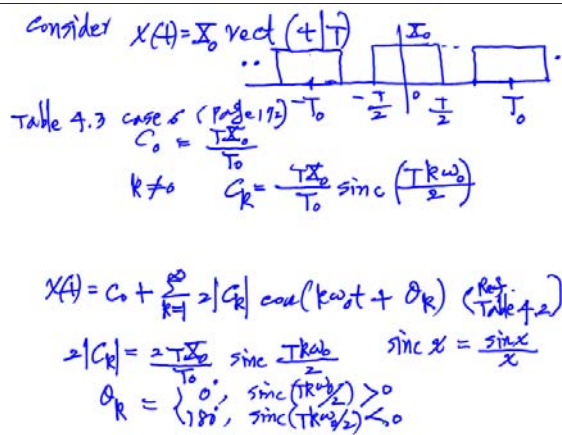 Consider x(t)=X₀ rect (t/T)
X₀
.. ... .
-T₀ -T/2 0 T/2 T₀
Table 4.3 case 6 (page 172)
C₀ = TX₀/T₀
k≠0 Cₖ = TX₀/T₀ sinc (Tkω₀/2)
x(t) = C₀ + ∑_{k=1}^{∞} 2|Cₖ| cos(kω₀t + θₖ) (Ref. Table 4.2)
2|Cₖ| = 2TX₀/T₀ sinc Tkω₀/2 sinc x = sin x/x
θₖ = { 0°, sinc(Tkω₀/2) >0
180°, sinc(Tkω₀/2) <0